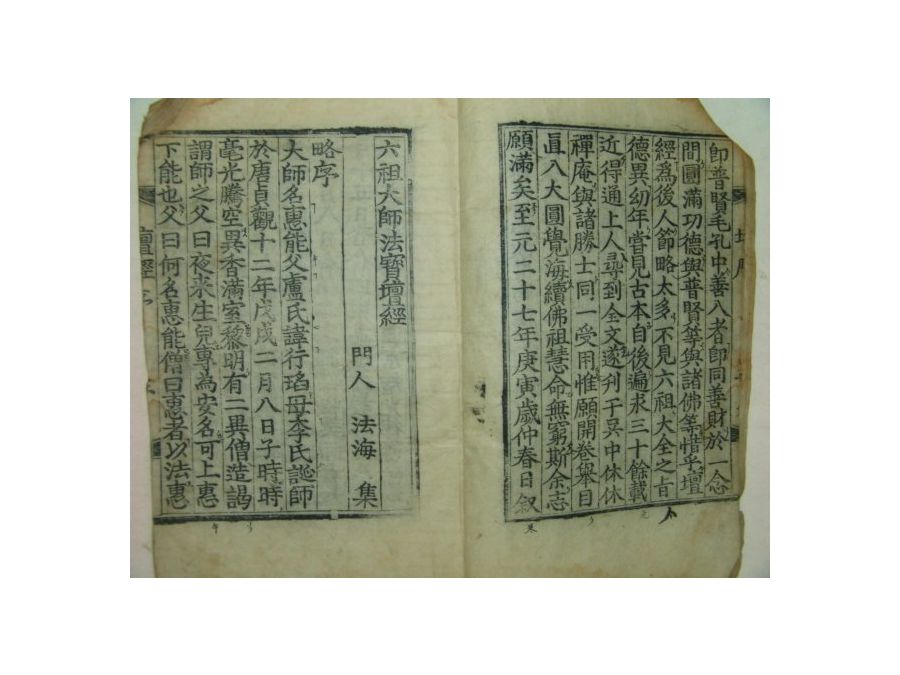 即普賢毛孔中善入者即同善財於一念
間圓滿功德與普賢等與諸佛等惜乎壇
經為後人節略太多不見六祖大全之旨
德異幼年嘗見古本自後遍求三十餘載
近得通上人尋到全文遂刊于吳中休休
禪庵與諸勝士同一受用惟願開卷舉目
真入大圓覺海續佛祖慧命無窮斯余志
願滿矣至元二十七年庚寅歲仲春日叙
六祖大師法寶壇經
門人 法海 集
略序
大師名惠能父盧氏諱行瑫母李氏誕師
於唐貞觀十二年戊戌二月八日子時時
毫光騰空異香滿室黎明有二異僧造謁
謂師之父曰夜來生兒專為安名可上惠
下能也父曰何名惠能僧曰惠者以法惠
壇經